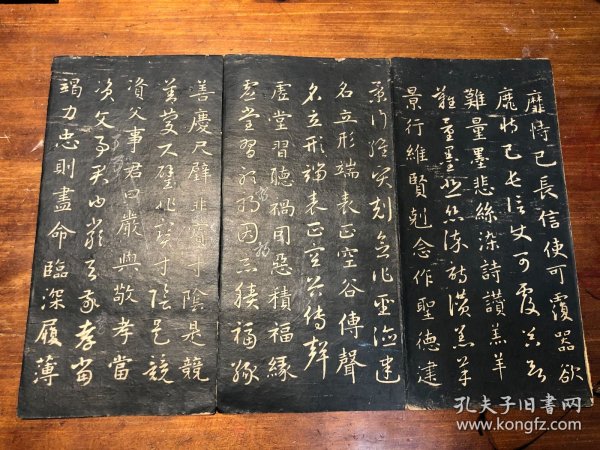 靡恃己長信使可覆器欲
靡恃己長信使可覆器欲
難量墨悲絲染詩讚羔羊
難量墨悲絲染詩讚羔羊
景行維賢剋念作聖德建
景行維賢剋念作聖德建
名立形端表正空谷傳聲
名立形端表正空谷傳聲
虛堂習聽禍因惡積福緣
虛堂習聽禍因惡積福緣
善慶尺璧非寶寸陰是競
善慶尺璧非寶寸陰是競
資父事君曰嚴與敬孝當
資父事君曰嚴與敬孝當
竭力忠則盡命臨深履薄
孔夫子旧书网
www.kongfz.com